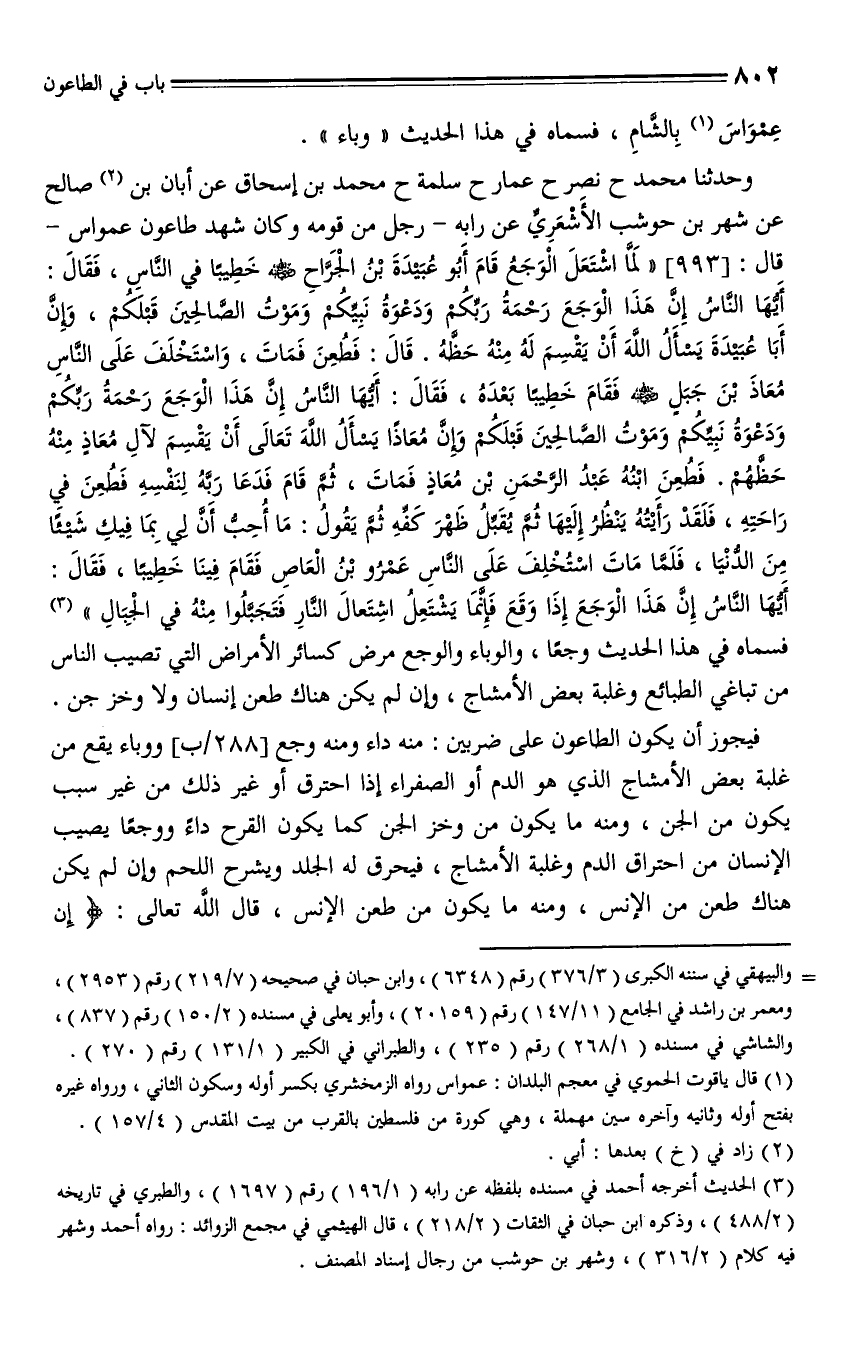 ٨٠٢ باب في الطاعون
عِمْوَاسَ (١) بِالشَّامِ ، فسماه في هذا الحديث « وباء » .
وحدثنا محمد ح نصر ح عمار ح سلمة ح محمد بن إسحاق عن أبان بن (٢) صالح
عن شهر بن حوشب الأَشْعَرِيِّ عن رابه – رجل من قومه وكان شهد طاعون عمواس –
قال : [٩٩٣] « لَمَّا اشْتَعَلَ الْوَجَعُ قَامَ أَبُو عُبَيْدَةَ بْنُ الْجَرَّاحِ ﷺ خَطِيبًا في النَّاسِ ، فَقَالَ :
أَيُّهَا النَّاسُ إِنَّ هَذَا الْوَجَعَ رَحْمَةُ رَبِّكُمْ وَدَعْوَةُ نَبِيِّكُمْ وَمَوْتُ الصَّالِحِينَ قَبْلَكُمْ ، وَإِنَّ
أَبَا عُبَيْدَةَ يَسْأَلُ اللَّهَ أَنْ يَقْسِمَ لَهُ مِنْهُ حَظَّهُ . قَالَ : فَطُعِنَ فَمَاتَ ، وَاسْتَخْلَفَ عَلَى النَّاسِ
مُعَاذَ بْنَ جَبَلٍ فَقَامَ خَطِيبًا بَعْدَهُ ، فَقَالَ : أَيُّهَا النَّاسُ إِنَّ هَذَا الْوَجَعَ رَحْمَةُ رَبِّكُمْ
وَدَعْوَةُ نَبِيِّكُمْ وَمَوْتُ الصَّالِحِينَ قَبْلَكُمْ وَإِنَّ مُعَاذًا يَسْأَلُ اللَّهَ تَعَالَى أَنْ يَقْسِمَ لآلِ مُعَاذٍ مِنْهُ
حَظَّهُمْ . فَطُعِنَ ابْنُهُ عَبْدُ الرَّحْمَنِ بْن مُعَاذٍ فَمَاتَ ، ثُمَّ قَامَ فَدَعَا رَبَّهُ لِنَفْسِهِ فَطُعِنَ في
رَاحَتِهِ ، فَلَقَدْ رَأَيْتُهُ يَنْظُرُ إِلَيْهَا ثُمَّ يُقَبِّلُ ظَهْرَ كَفِّهِ ثُمَّ يَقُولُ : مَا أُحِبُّ أَنَّ لِي بِمَا فِيكِ شَيْئًا
مِنَ الدُّنْيَا ، فَلَمَّا مَاتَ اسْتُخْلِفَ عَلَى النَّاسِ عَمْرُو بْنُ الْعَاصِ فَقَامَ فِينَا خَطِيبًا ، فَقَالَ :
أَيُّهَا النَّاسُ إِنَّ هَذَا الْوَجَعَ إِذَا وَقَعَ فَإِنَّمَا يَشْتَعِلُ اشتِعالَ النَّارِ فَتَجَبَّلُوا مِنْهُ في الْجِبَالِ » (٣)
فسماه في هذا الحديث وجعًا ، والوباء والوجع مرض كسائر الأمراض التي تصيب الناس
من تباغي الطبائع وغلبة بعض الأمشاج ، وإن لم يكن هناك طعن إنسان ولا وخز جن .
فيجوز أن يكون الطاعون على ضربين : منه داء ومنه وجع [٢٨٨/ب] ووباء يقع من
غلبة بعض الأمشاج الذي هو الدم أو الصفراء إذا احترق أو غير ذلك من غير سبب
يكون من الجن ، ومنه ما يكون من وخز الجن كما يكون القرح داءً ووجعًا يصيب
الإنسان من احتراق الدم وغلبة الأمشاج ، فيحرق له الجلد ويشرح اللحم وإن لم يكن
هناك طعن من الإنس ، ومنه ما يكون من طعن الإنس ، قال اللَّه تعالى : ﴿ إِن
= والبيهقي في سننه الكبرى ( ٣٧٦/٣ ) رقم ( ٦٣٤٨ ) ، وابن حبان في صحيحه ( ٢١٩/٧ ) رقم ( ٢٩٥٣ ) ،
ومعمر بن راشد في الجامع ( ١٤٧/١١ ) رقم ( ٢٠١٥٩ ) ، وأبو يعلى في مسنده ( ١٥٠/٢ ) رقم ( ٨٣٧ ) ،
والشاشي في مسنده ( ٢٦٨/١ ) رقم ( ٢٣٥ ) ، والطبراني في الكبير ( ١٣١/١ ) رقم ( ٢٧٠ ) .
(١) قال ياقوت الحموي في معجم البلدان : عمواس رواه الزمخشري بكسر أوله وسكون الثاني ، ورواه غيره
بفتح أوله وثانيه وآخره سين مهملة ، وهي كورة من فلسطين بالقرب من بيت المقدس ( ١٥٧/٤ ) .
(٢) زاد في ( خ ) بعدها : أبي .
(٣) الحديث أخرجه أحمد في مسنده بلفظه عن رابه ( ١٩٦/١ ) رقم ( ١٦٩٧ ) ، والطبري في تاريخه
( ٤٨٨/٢ ) ، وذكره ابن حبان في الثقات ( ٢١٨/٢ ) ، قال الهيثمي في مجمع الزوائد : رواه أحمد وشهر
فيه كلام ( ٣١٦/٢ ) ، وشهر بن حوشب من رجال إسناد المصنف .